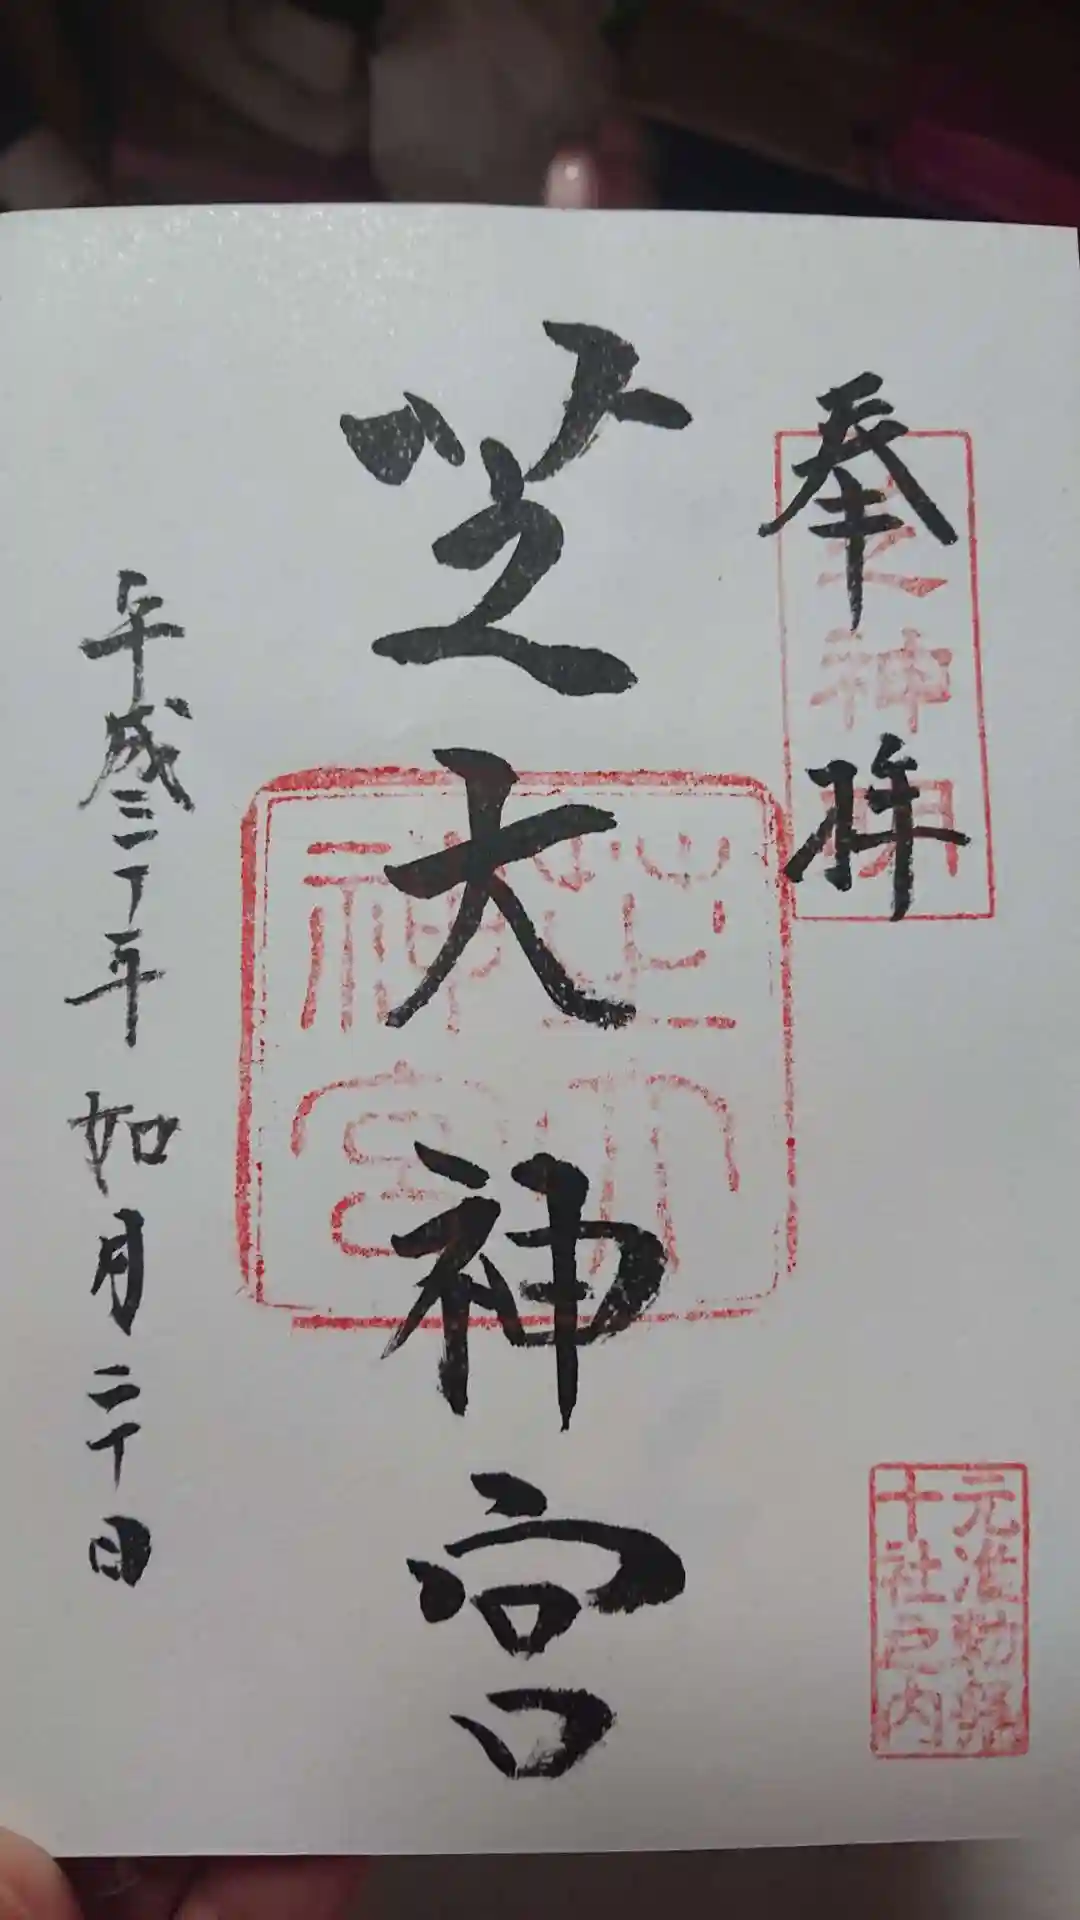 奉拝
芝神明
元准勅祭
十社之内
芝大神宮
芝大
神宮
平成三十年如月二十日